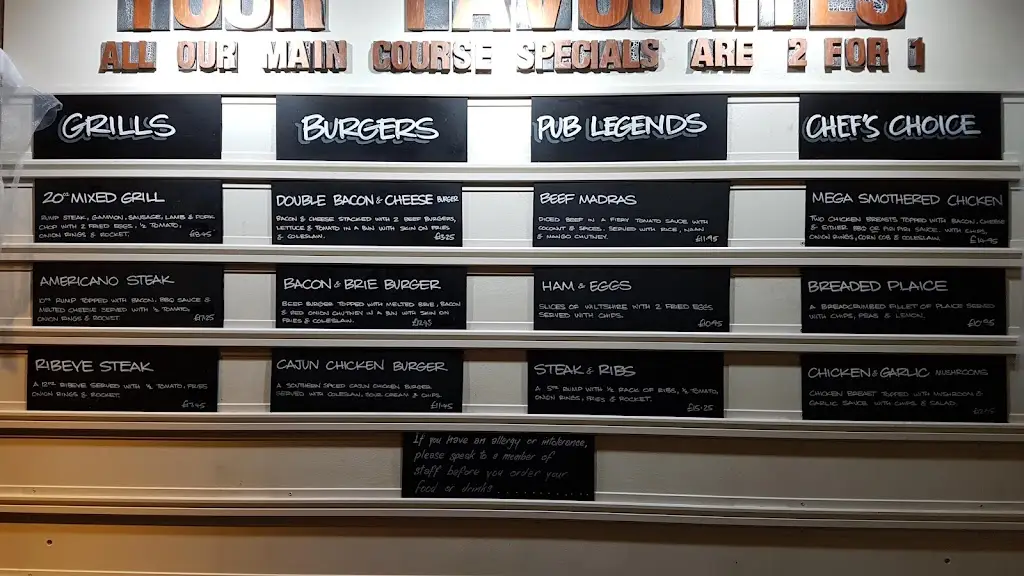 YOUR FAVOURITES
ALL OUR MAIN COURSE SPECIALS ARE 2 FOR 1
GRILLS
20oz MIXED GRILL
RUMP STEAK, GAMMON, SAUSAGE, LAMB & PORK
CHOP WITH 2 FRIED EGGS, ½ TOMATO,
ONION RINGS & ROCKET.
AMERICANO STEAK
10oz RUMP TOPPED WITH BACON, BBQ SAUCE &
MELTED CHEESE SERVED WITH ½ TOMATO,
ONION RINGS & ROCKET.
RIBEYE STEAK
A 12oz RIBEYE SERVED WITH ½ TOMATO, FRIES
ONION RINGS & ROCKET.
BURGERS
DOUBLE BACON & CHEESE BURGER
BACON & CHEESE STACKED WITH 2 BEEF BURGERS,
LETTUCE & TOMATO IN A BUN WITH SKIN ON FRIES
& COLESLAW.
BACON & BRIE BURGER
BEEF BURGER TOPPED WITH MELTED BRIE, BACON
& RED ONION CHUTNEY IN A BUN WITH SKIN ON
FRIES & COLESLAW.
CAJUN CHICKEN BURGER
A SOUTHERN SPICED CAJUN CHICKEN BURGER
SERVED WITH COLESLAW, SOUR CREAM & CHIPS.
£11.45
PUB LEGENDS
BEEF MADRAS
DICED BEEF IN A FIERY TOMATO SAUCE WITH
COCONUT & SPICES. SERVED WITH RICE, NAAN
& MANGO CHUTNEY. £11.95
HAM & EGGS
SLICES OF WILTSHIRE WITH 2 FRIED EGGS
SERVED WITH CHIPS.
£10.95
STEAK & RIBS
A 5oz RUMP WITH ½ RACK OF RIBS, ½ TOMATO,
ONION RINGS, FRIES & ROCKET.
£15.25
CHEF'S CHOICE
MEGA SMOTHERED CHICKEN
TWO CHICKEN BREASTS TOPPED WITH BACON, CHEESE
& EITHER BBQ OR PIRI PIRI SAUCE. WITH CHIPS,
ONION RINGS, CORN COB & COLESLAW. £14.95
BREADED PLAICE
A BREADCRUMBED FILLET OF PLAICE SERVED
WITH CHIPS, PEAS & LEMON.
£10.95
CHICKEN & GARLIC MUSHROOMS
CHICKEN BREAST TOPPED WITH MUSHROOM &
GARLIC SAUCE WITH CHIPS & SALAD.
If you have an allergy or intolerance,
please speak to a member of
staff before you order your
food or drinks..............